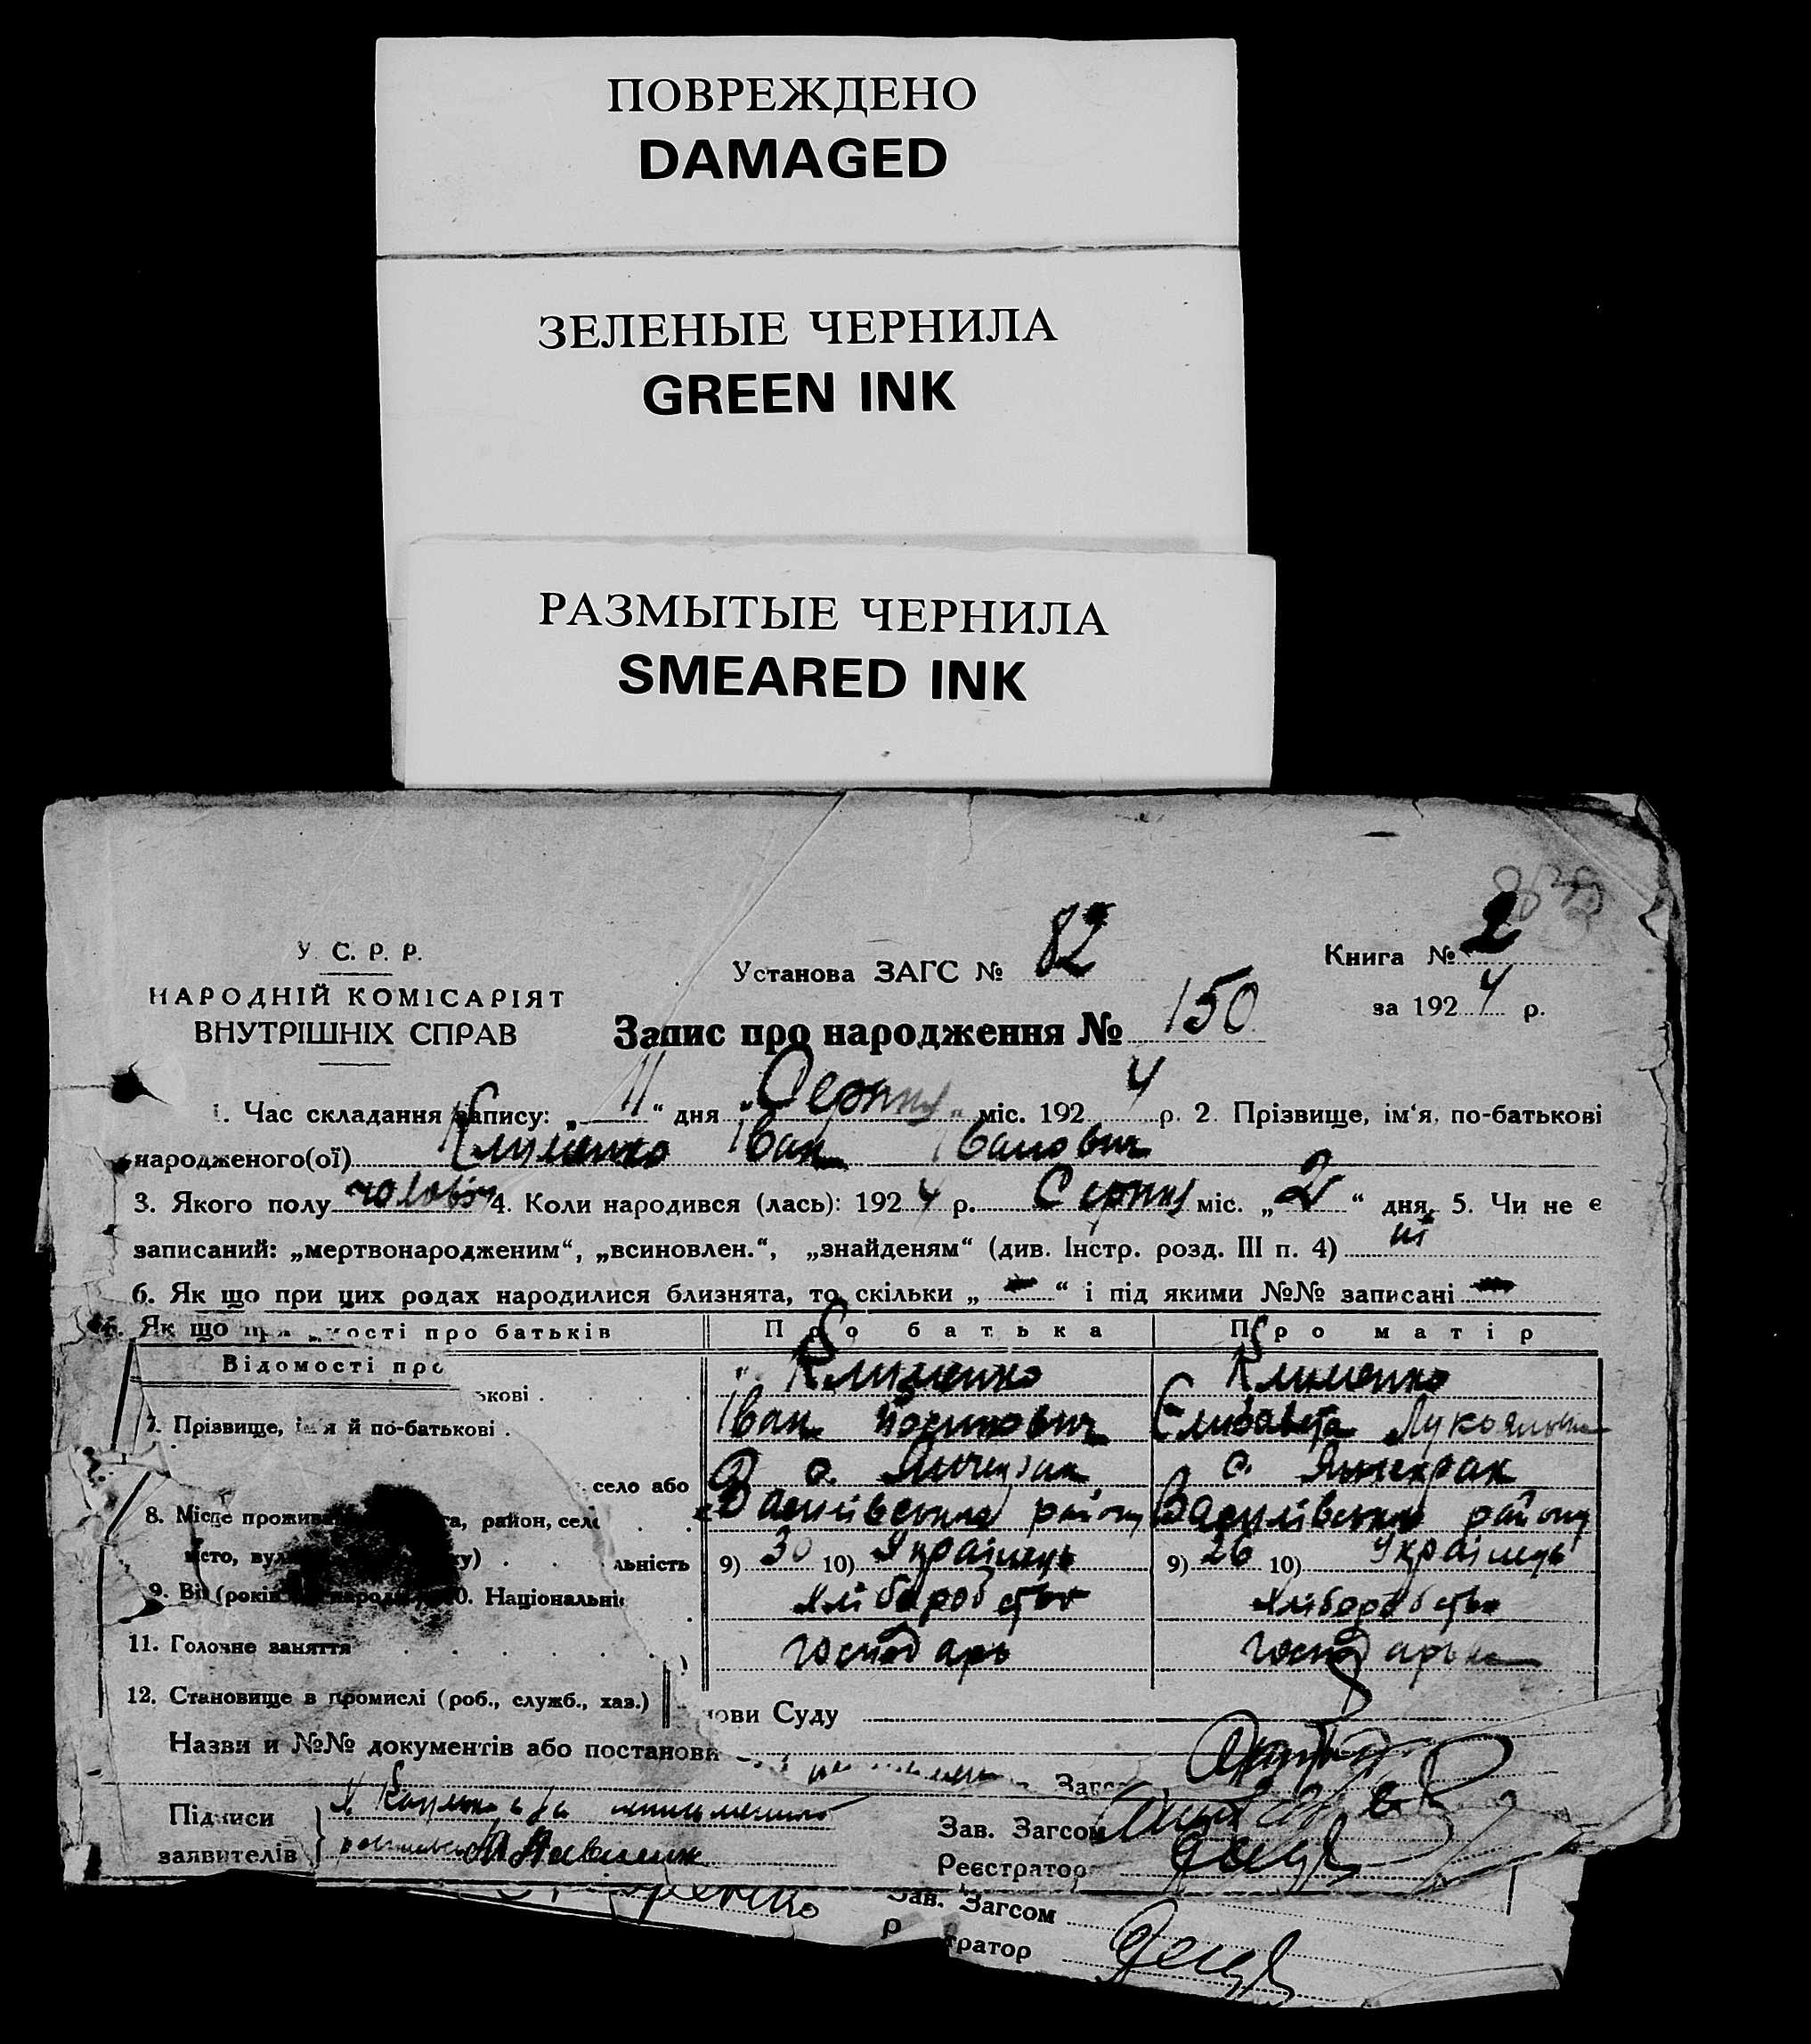 ПОВРЕЖДЕНО
DAMAGED
ЗЕЛЕНЫЕ ЧЕРНИЛА
GREEN INK
РАЗМЫТЫЕ ЧЕРНИЛА
SMEARED INK
У. С. Р. Р.
НАРОДНІЙ КОМІСАРІЯТ
ВНУТРІШНІХ СПРАВ
Установа ЗАГС № 82
Книга № 2
за 1924 р.
Запис про народження № 150
1. Час складання запису: „ 11 “ дня „Серпня„ міс. 1924 р. 2. Прізвище, ім‘я, по-батькові
народженого(ої) Клименко Іван Іванович
3. Якого полу чоловіч 4. Коли народився (лась): 1924 р. Серпня міс. „ 2 “ дня, 5. Чи не є
записаний: „мертвонародженим“, „всиновлен.“, „знайденям“ (див. Інстр. розд. III п. 4) ні
6. Як що при цих родах народилися близнята, то скільки „ — “ і під якими №№ записані —
6. Як що при
ності про батьків
Про батька
Про матір
Відомості про
ькові .
Клименко
Клименко
7. Прізвище, ім‘я й по-батькові .
Іван
Єлизавета
село або
с.
с. Янчекрак
8. Місце прожива
та, район, село
Василівського району
Василівського району
місто, вул
ку) . .
льність
9) 30 10) Українець
9) 26 10) Українець
9. Вік (років
народ
10. Національні
Хліборобство
Хліборобство
11. Головне заняття
господарь
господарька
12. Становище в промислі (роб., служб., хаз.)
нови Суду
Назви и №№ документів або постанови
Загс
Підписи
заявителів
Зав. Загсом
Реєстратор
Зав. Загсом
Р
тратор